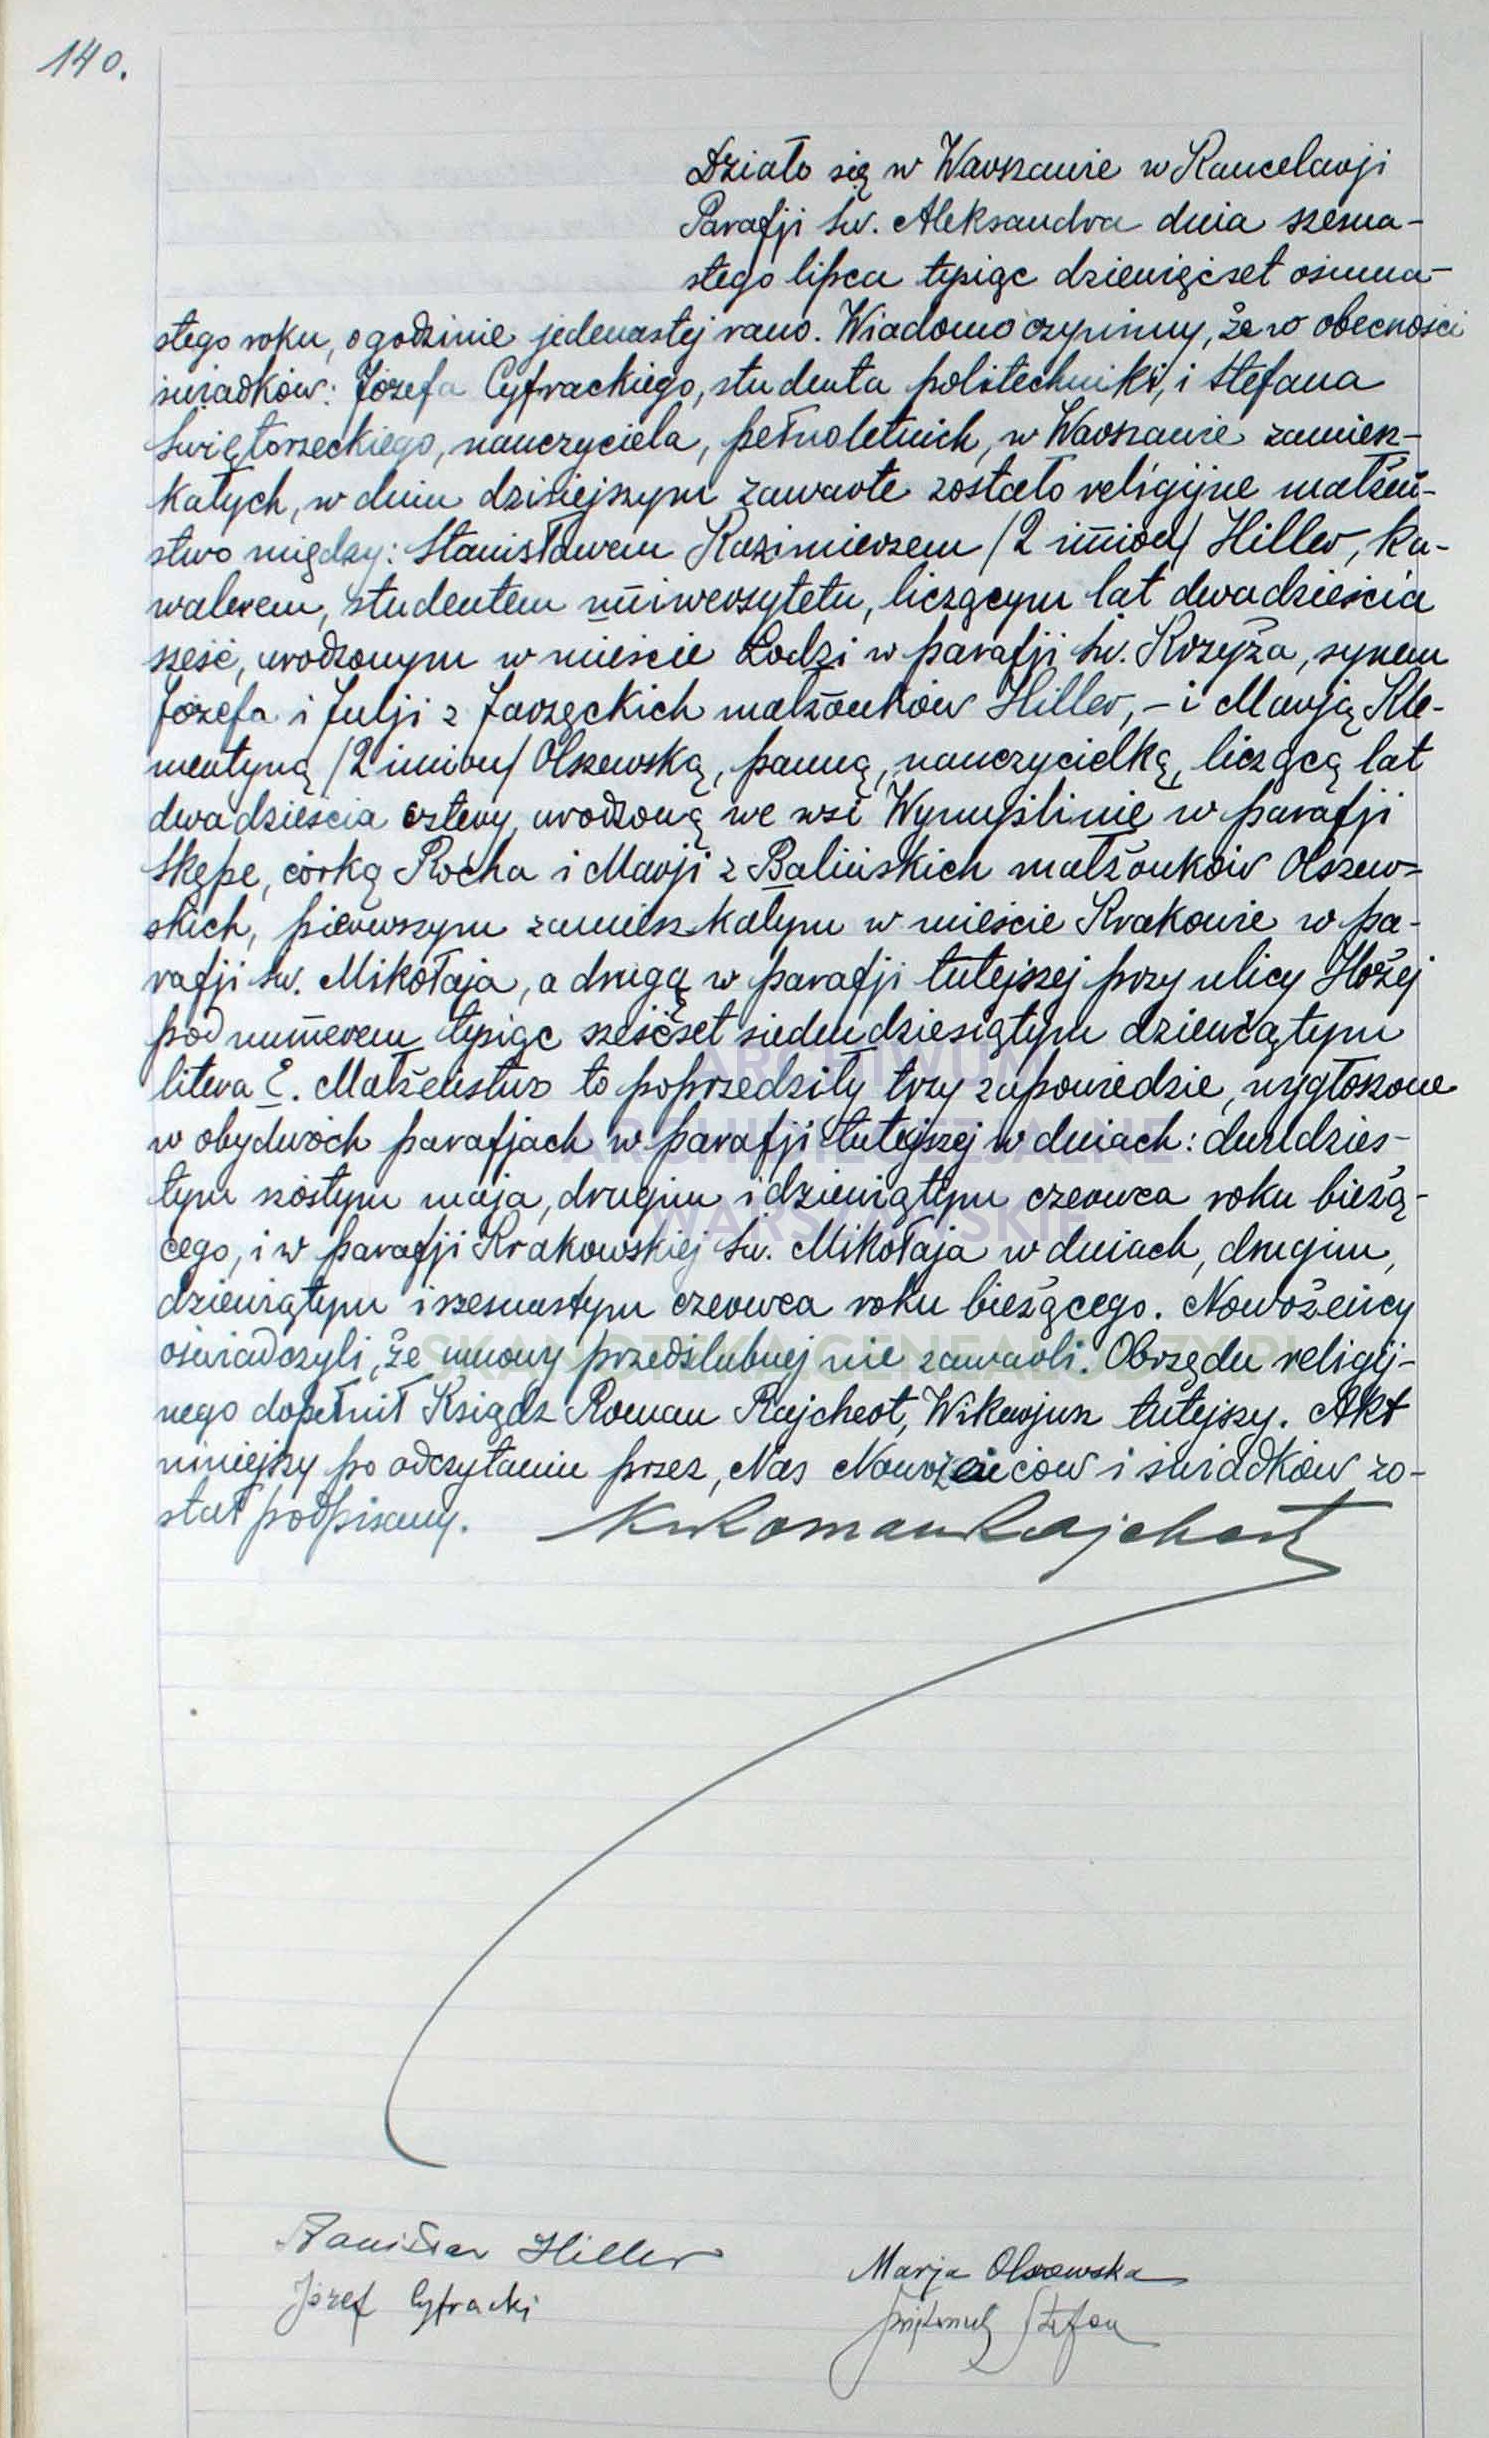 140.
Działo się w Warszawie w Kancelarji
Parafji św. Aleksandra dnia szesna-
stego lipca tysiąc dziewięćset osiemna-
stego roku, o godzinie jedenastej rano. Wiadomo czynimy, że w obecności
świadków: Józefa Cyfrackiego, studenta politechniki, i Stefana
Świętorzeckiego, nauczyciela, pełnoletnich, w Warszawie zamiesz-
kałych, w dniu dzisiejszym zawarte zostało religijne małżeń-
stwo między: Stanisławem Kazimierzem /2 imion/ Hiller, ka-
walerem, studentem uniwersytetu, liczącym lat dwadzieścia
sześć, urodzonym w mieście Łodzi w parafji św. Krzyża, synem
Józefa i Julji z Jarzęckich małżonków Hiller, – i Marją Kle-
mentyną /2 imion/ Olszewską, panną, nauczycielką, liczącą lat
dwadzieścia cztery, urodzoną we wsi Wymyślinie w parafji
Skępe, córką Rocha i Marji z Balińskich małżonków Olszew-
skich, pierwszym zamieszkałym w mieście Krakowie w pa-
rafji św. Mikołaja, a drugą w parafji tutejszej przy ulicy Hożej
pod numerem tysiąc sześćset siedmdziesiątym dziewiątym
litera E. Małżeństwo to poprzedziły trzy zapowiedzie, wygłoszone
w obydwóch parafjach w parafji tutejszej w dniach: dwudzies-
tym szóstym maja, drugim i dziewiątym czerwca roku bieżą-
cego, i w parafji Krakowskiej św. Mikołaja w dniach, drugim,
dziewiątym i szesnastym czerwca roku bieżącego. Nowożeńcy
oświadczyli, że umowy przedślubnej nie zawarli. Obrzędu religij-
nego dopełnił Ksiądz Roman Rajchert, Wikarjusz tutejszy. Akt
niniejszy po odczytaniu przez, Nas Nowożeńców i świadków zo-
stał podpisany. Ks Roman Rajchert
ARCHIWUM
ARCHIDIECEZJALNE
WARSZAWSKIE
SKANOTEKA.GENEALODZY.PL
Stanisław Hiller
Marja Olszewska
Józef Cyfracki
Stefan